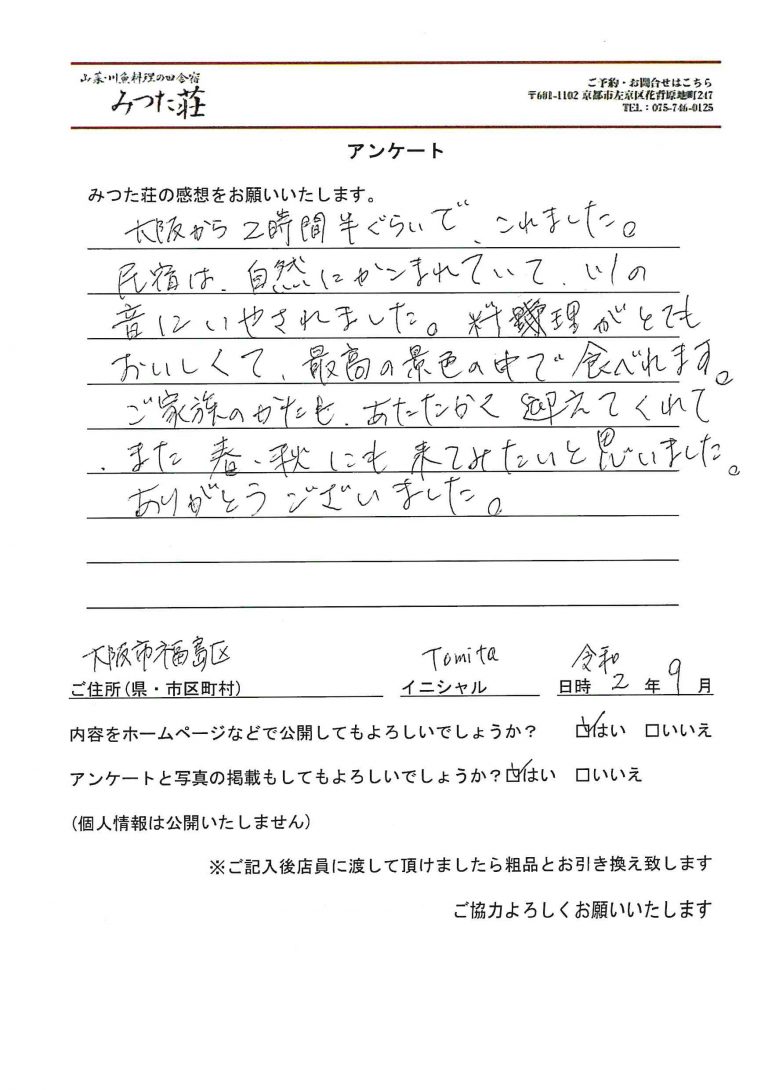 山菜・川魚料理の田舎宿
みつた荘
ご予約・お問合せはこちら
〒601-1102 京都市左京区花背原地町247
TEL：075-746-0125
アンケート
みつた荘の感想をお願いいたします。
大阪から2時間半ぐらいで、これました。
民宿は、自然にかこまれていて、川の
音にいやされました。料理がとても
おいしくて、最高の景色の中で食べれます。
ご家族のかたも、あたたかく迎えてくれて
、また春、秋にも来てみたいと思いました。
ありがとうございました。
大阪市福島区 Tomita 令和
ご住所(県・市区町村) イニシャル 日時 2 年 9 月
内容をホームページなどで公開してもよろしいでしょうか？ ☑はい □いいえ
アンケートと写真の掲載もしてもよろしいでしょうか？☑はい □いいえ
(個人情報は公開いたしません)
※ご記入後店員に渡して頂けましたら粗品とお引き換え致します
ご協力よろしくお願いいたします